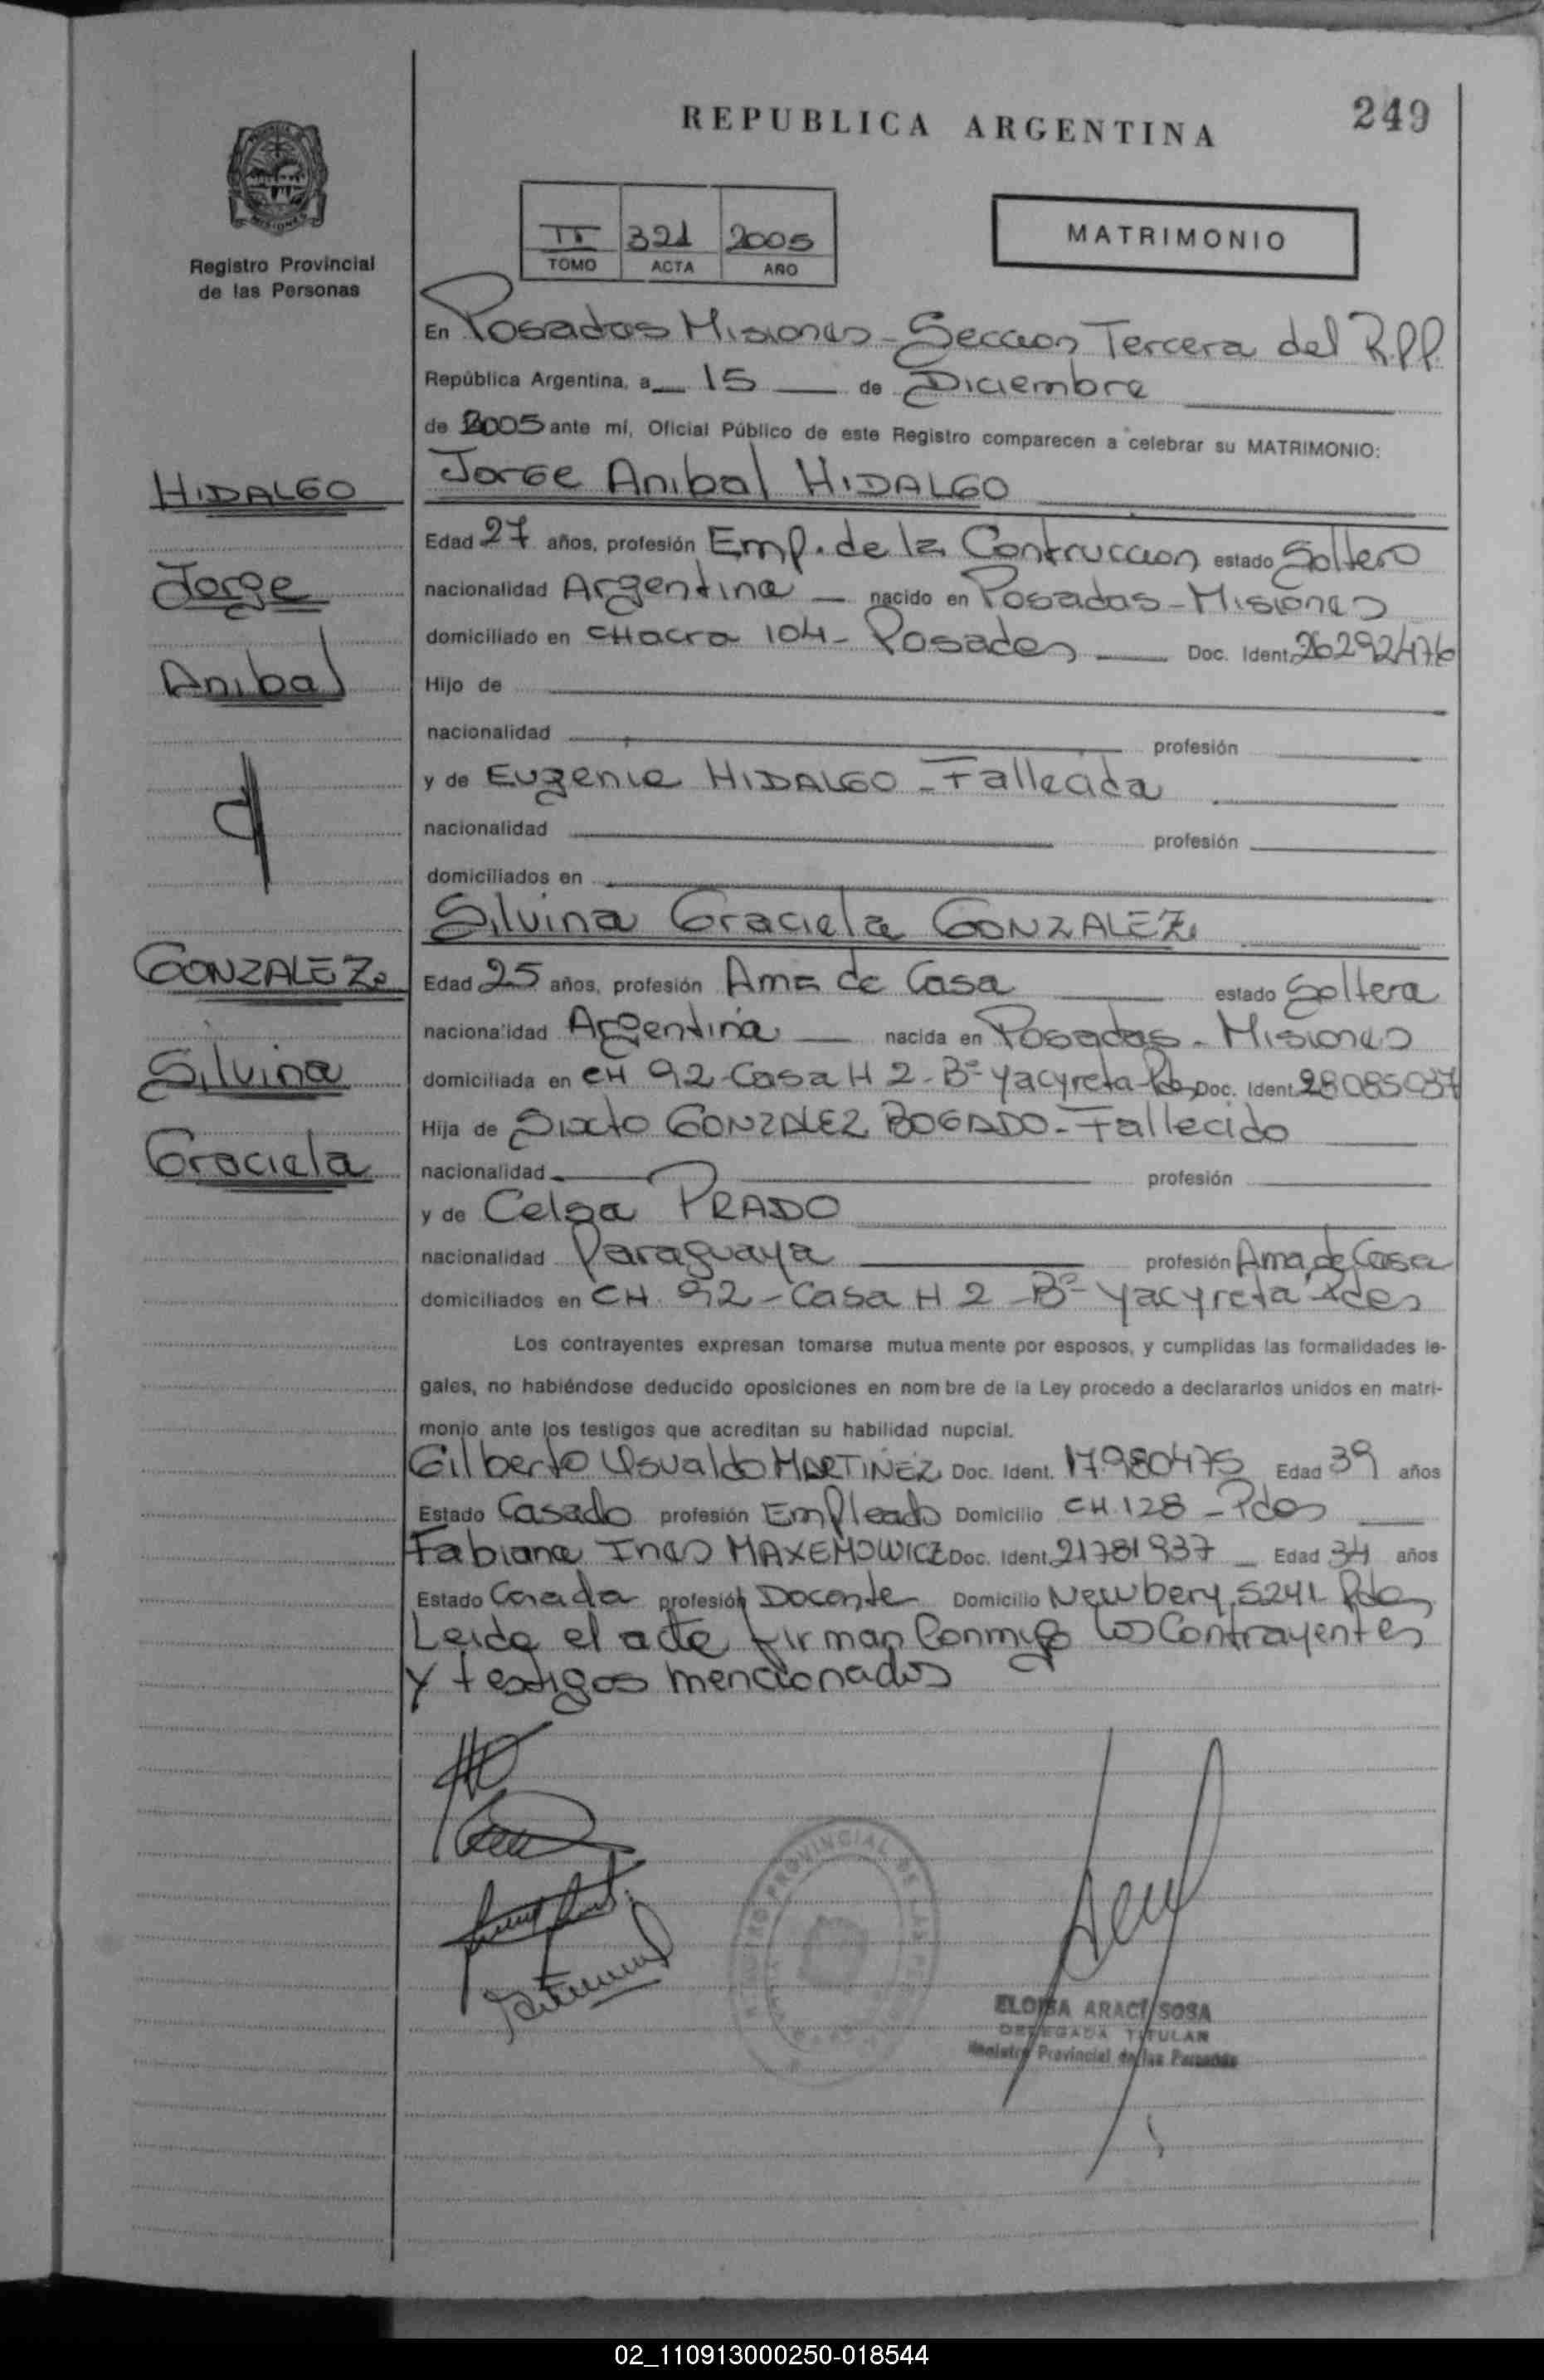 REPUBLICA ARGENTINA
249
MISIONES
Registro Provincial
de las Personas
II 321 2005
TOMO ACTA AÑO
MATRIMONIO
En Posadas Misiones - Seccion Tercera del R.P.P.
República Argentina, a 15 de Diciembre
de 2005 ante mí, Oficial Público de este Registro comparecen a celebrar su MATRIMONIO:
HIDALGO
Jorge
Anibal
Jorge Anibal HIDALGO
Edad 27 años, profesión Emp. de la Contruccion estado Soltero
nacionalidad Argentina nacido en Posadas - Misiones
domiciliado en CHacra 104 - Posadas Doc. Ident. 26292476
Hijo de
nacionalidad profesión
y de Eugenia HIDALGO - Fallecida
nacionalidad profesión
domiciliados en
GONZALEZ
Silvina
Graciela
Silvina Graciela GONZALEZ
Edad 25 años, profesión Ama de Casa estado Soltera
nacionalidad Argentina nacida en Posadas - Misiones
domiciliada en CH 92 - Casa H 2 - Bº Yacyreta - Doc. Ident. 28085037
Hija de Sixto GONZALEZ BOGADO - Fallecido
nacionalidad profesión
y de Celsa PRADO
nacionalidad Paraguaya profesión Ama de Casa
domiciliados en CH. 92 - Casa H 2 - Bº Yacyreta Pdas
Los contrayentes expresan tomarse mutua mente por esposos, y cumplidas las formalidades le-
gales, no habiéndose deducido oposiciones en nom bre de la Ley procedo a declararlos unidos en matri-
monio ante los testigos que acreditan su habilidad nupcial.
Gilberto Osvaldo MARTINEZ Doc. Ident. 17.980475 Edad 39 años
Estado Casado profesión Empleado Domicilio CH. 128 - Pdas
Fabiana Ines MAXEMOWICZ Doc. Ident. 21781937 Edad 34 años
Estado Casada profesión Docente Domicilio Newbery 5241 Pdas
Leida el acta firman Conmigo los Contrayentes
y testigos mencionados
ELOISA ARACI SOSA
DELEGADA TITULAR
Registro Provincial de las Personas
02_110913000250-018544